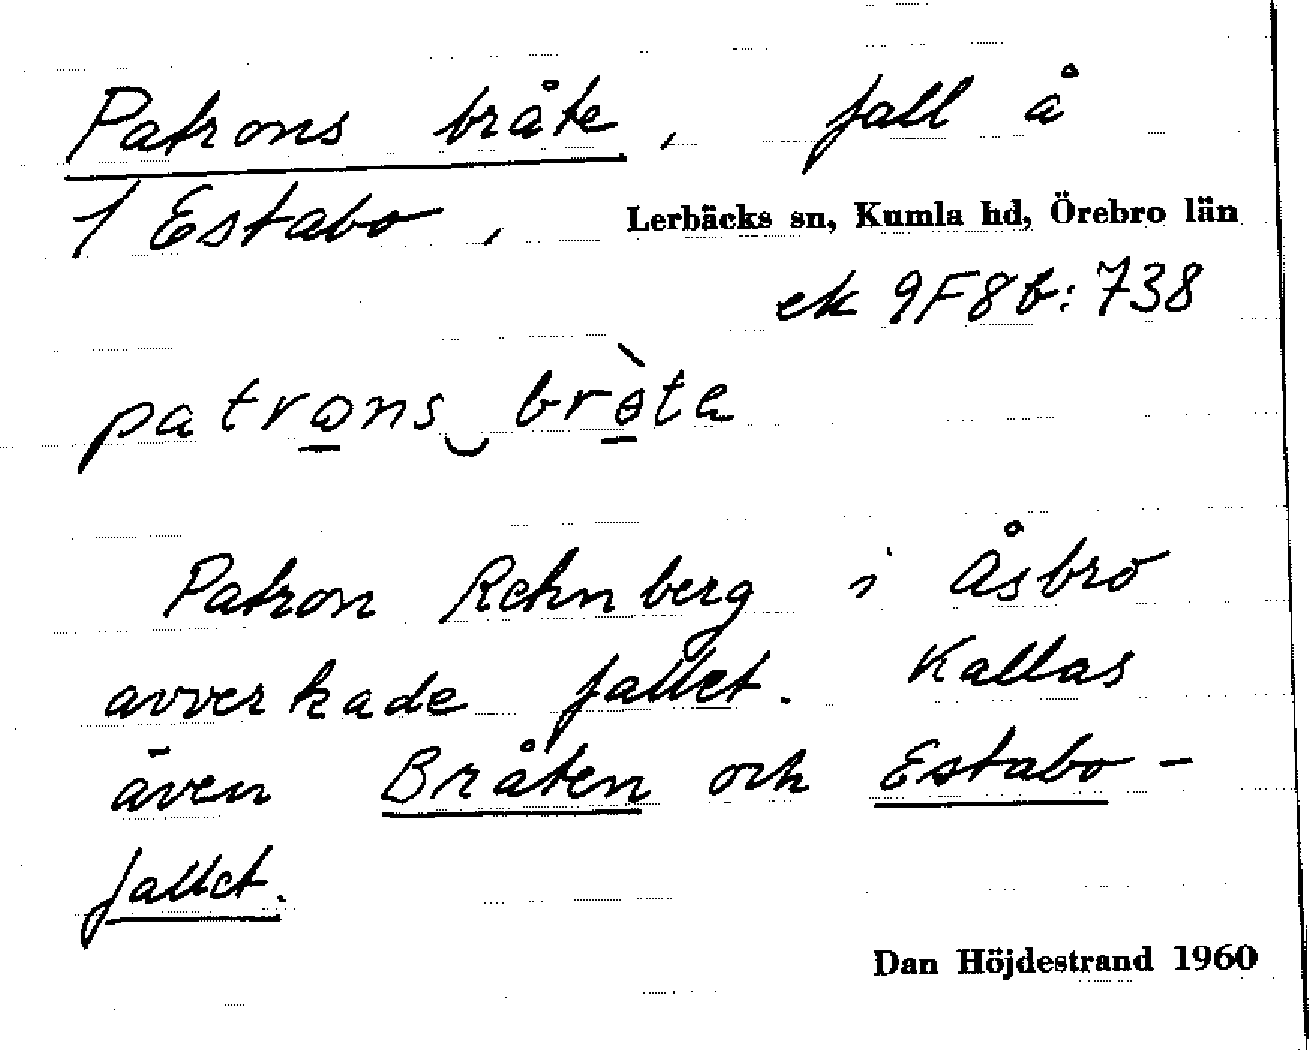 Patrons bråte, fall å
1 Estabo, Lerbäcks sn, Kumla hd, Örebro län
ek 9F8b: 738
patrons bròta
Patron Rehnberg i Åsbro
avverkade fallet. Kallas
även Bråten och Estabo-
fallet.
Dan Höjdestrand 1960